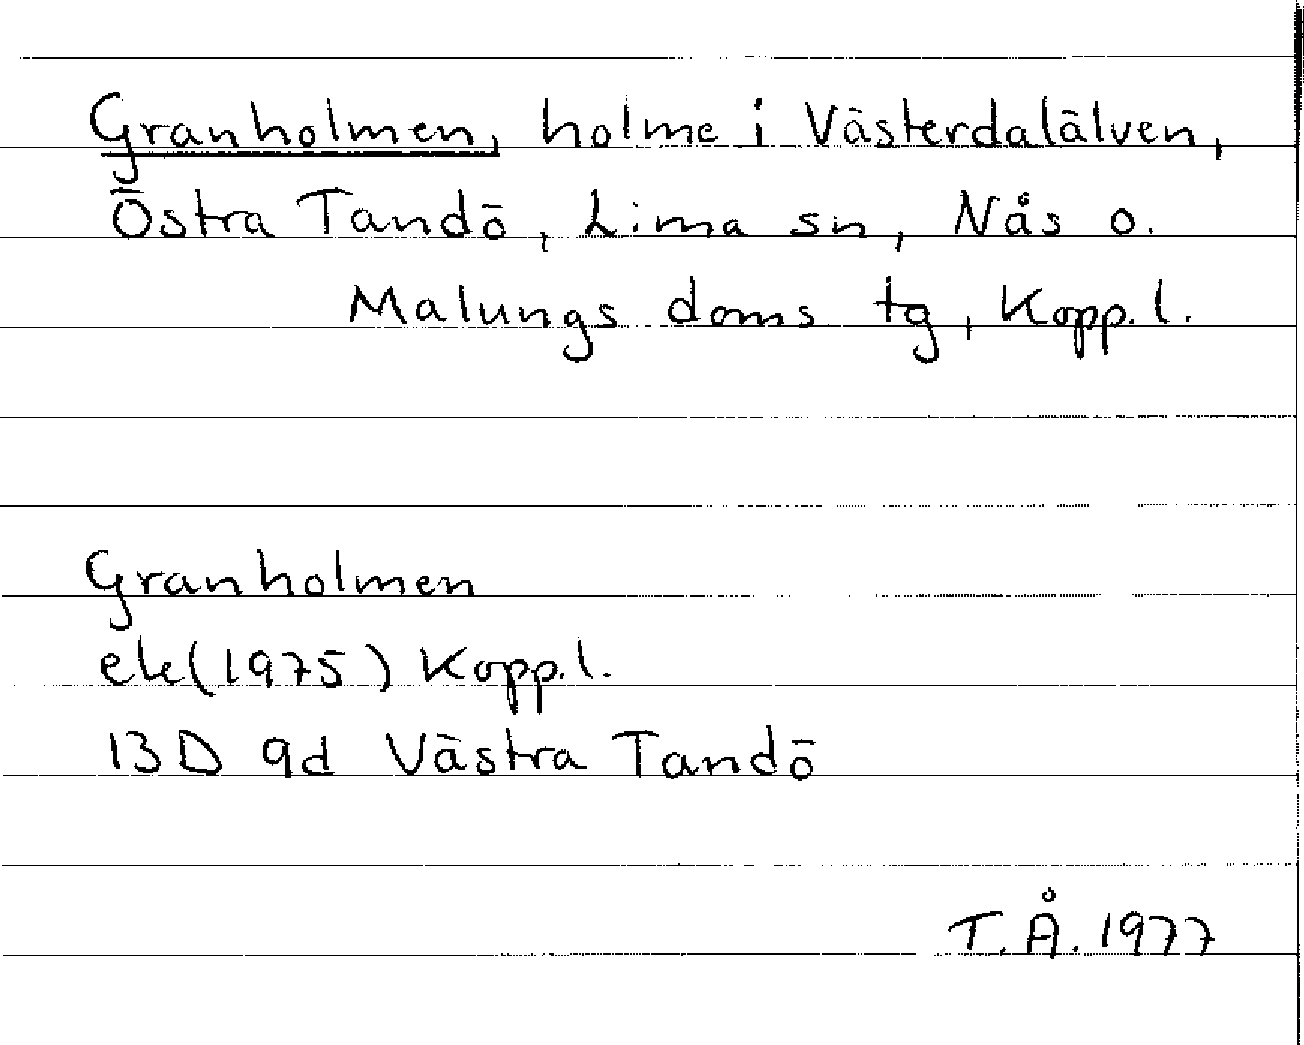 Granholmen, holme i Västerdalälven,
Östra Tandö, Lima sn, Nås o.
Malungs doms tg, Kopp.l.
Granholmen
ek(1975) Kopp.l.
13D 9d Västra Tandö
T.Å. 1977